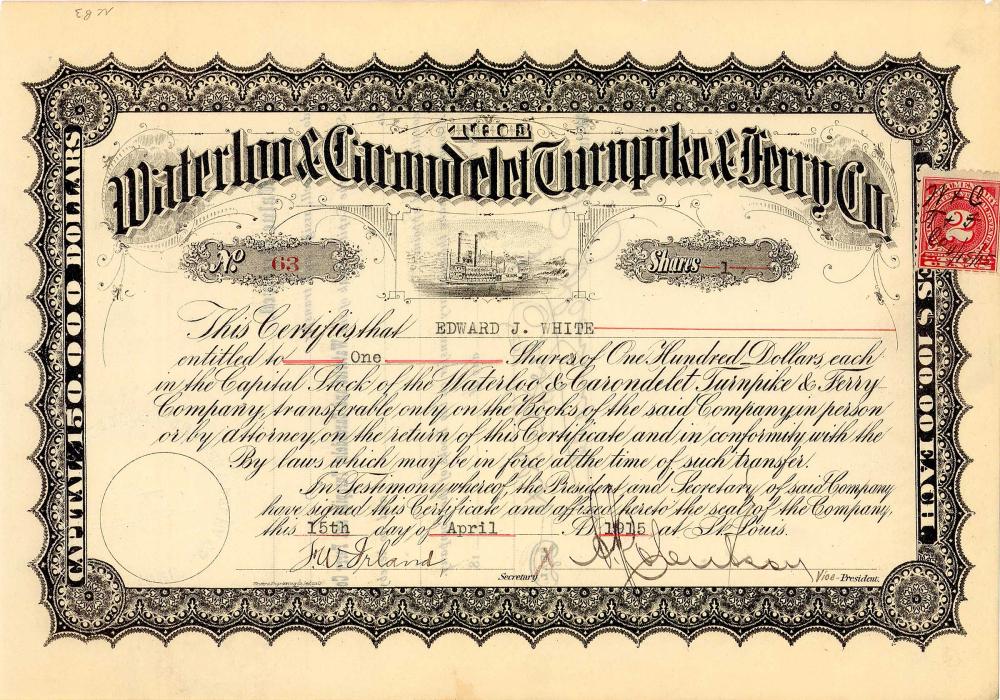 N 83
Waterloo & Carondelet Turnpike & Ferry Co
No 63
Shares 1
CAPITAL 150,000 DOLLARS
This Certifies that EDWARD J. WHITE
entitled to One Shares of One Hundred Dollars each
in the Capital Stock of the Waterloo & Carondelet Turnpike & Ferry
Company, transferable only on the Books of the said Company in person
or by Attorney, on the return of this Certificate and in conformity with the
By laws which may be in force at the time of such transfer.
In Testimony whereof, the President and Secretary of said Company
have signed this Certificate and affixed hereto the seal of the Company,
this 15th day of April A.D. 1915 at St. Louis.
F. W. Ireland
Secretary
Vice-President.
2